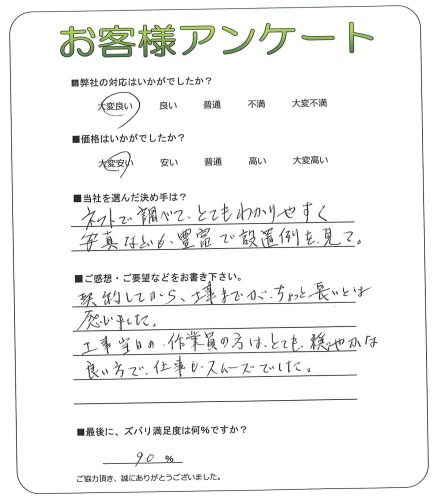 お客様アンケート
■弊社の対応はいかがでしたか?
大変良い 良い 普通 不満 大変不満
■価格はいかがでしたか?
大変安い 安い 普通 高い 大変高い
■当社を選んだ決め手は?
ネットで調べて、とてもわかりやすく
写真なども、豊富で設置例を、見て。
■ご感想・ご要望などをお書き下さい。
契約してから、工事までが、ちょっと長いとは
感じました。
工事当日の、作業員の方は、とても、穏やかな
良い方で、仕事も、スムーズでした。
■最後に、ズバリ満足度は何%ですか?
90 %
ご協力頂き、誠にありがとうございました。